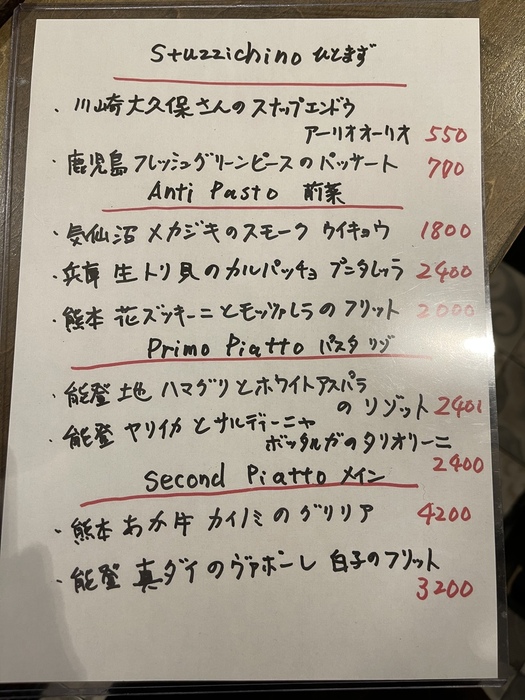 Stuzzichino ひとまず
・川崎大久保さんのスナップエンドウ
アーリオオーリオ 550
・鹿児島 フレッシュグリーンピースのパッサート 700
Anti Pasto 前菜
・気仙沼 メカジキのスモーク ウイキョウ 1800
・兵庫 生トリ貝のカルパッチョ プンタレッラ 2400
・熊本 花ズッキーニとモッツァレラのフリット 2000
Primo Piatto パスタ リゾ
・能登 土地 ハマグリとホワイトアスパラ
のリゾット 2400
・能登 ヤリイカとサルディーニャ
ボッタルガのタリオリーニ
2400
Second Piatto メイン
・熊本 あか牛 カイノミのグリリア 4200
・能登 真ダイのヴァポーレ 白子のフリット
3200